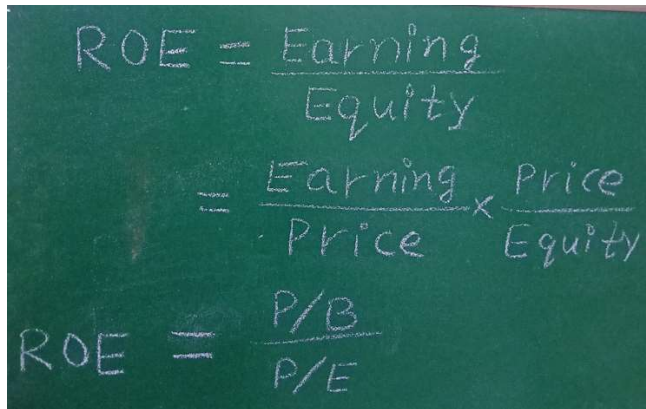 ROE = Earning / Equity
= Earning / Price × Price / Equity
ROE = P/B / P/E